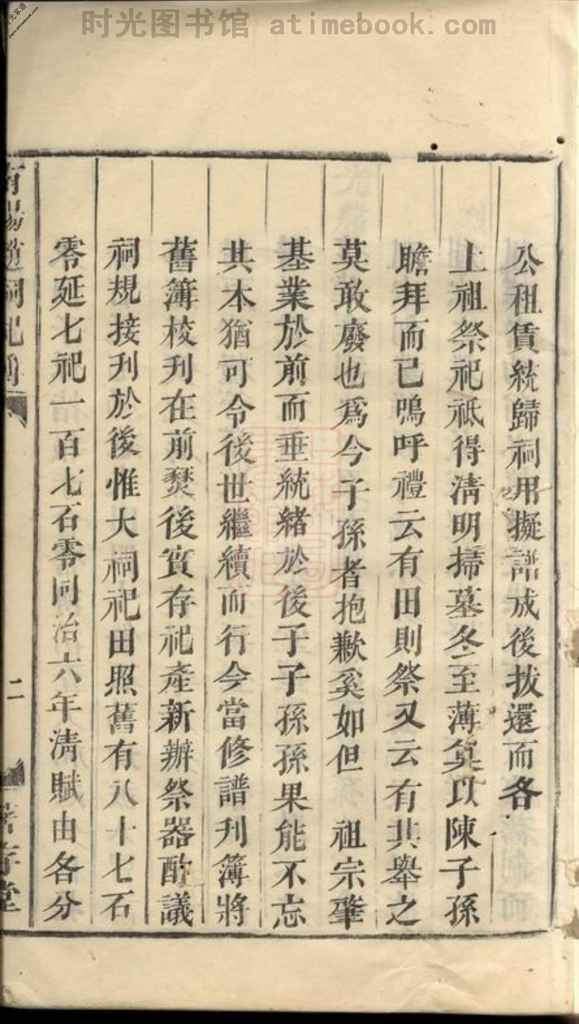 时光图书馆 atimebook.com
公租賃統歸祠用擬譜成後拔還而各
上祖祭祀祗得清明掃墓冬至薄奠以陳子孫
瞻拜而已嗚呼禮云有田則祭又云有其舉之
莫敢廢也爲今子孫者抱歉奚如但 祖宗肇
基業於前而垂統緒於後于子孫孫果能不忘
其本猶可令後世繼續而行今當修譜刊簿將
舊簿校刊在前燹後實存祀產新辦祭器酌議
祠規接刊於後惟大祠祀田照舊有八十七石
零延七祀一百七石零同治六年清賦由各分
二